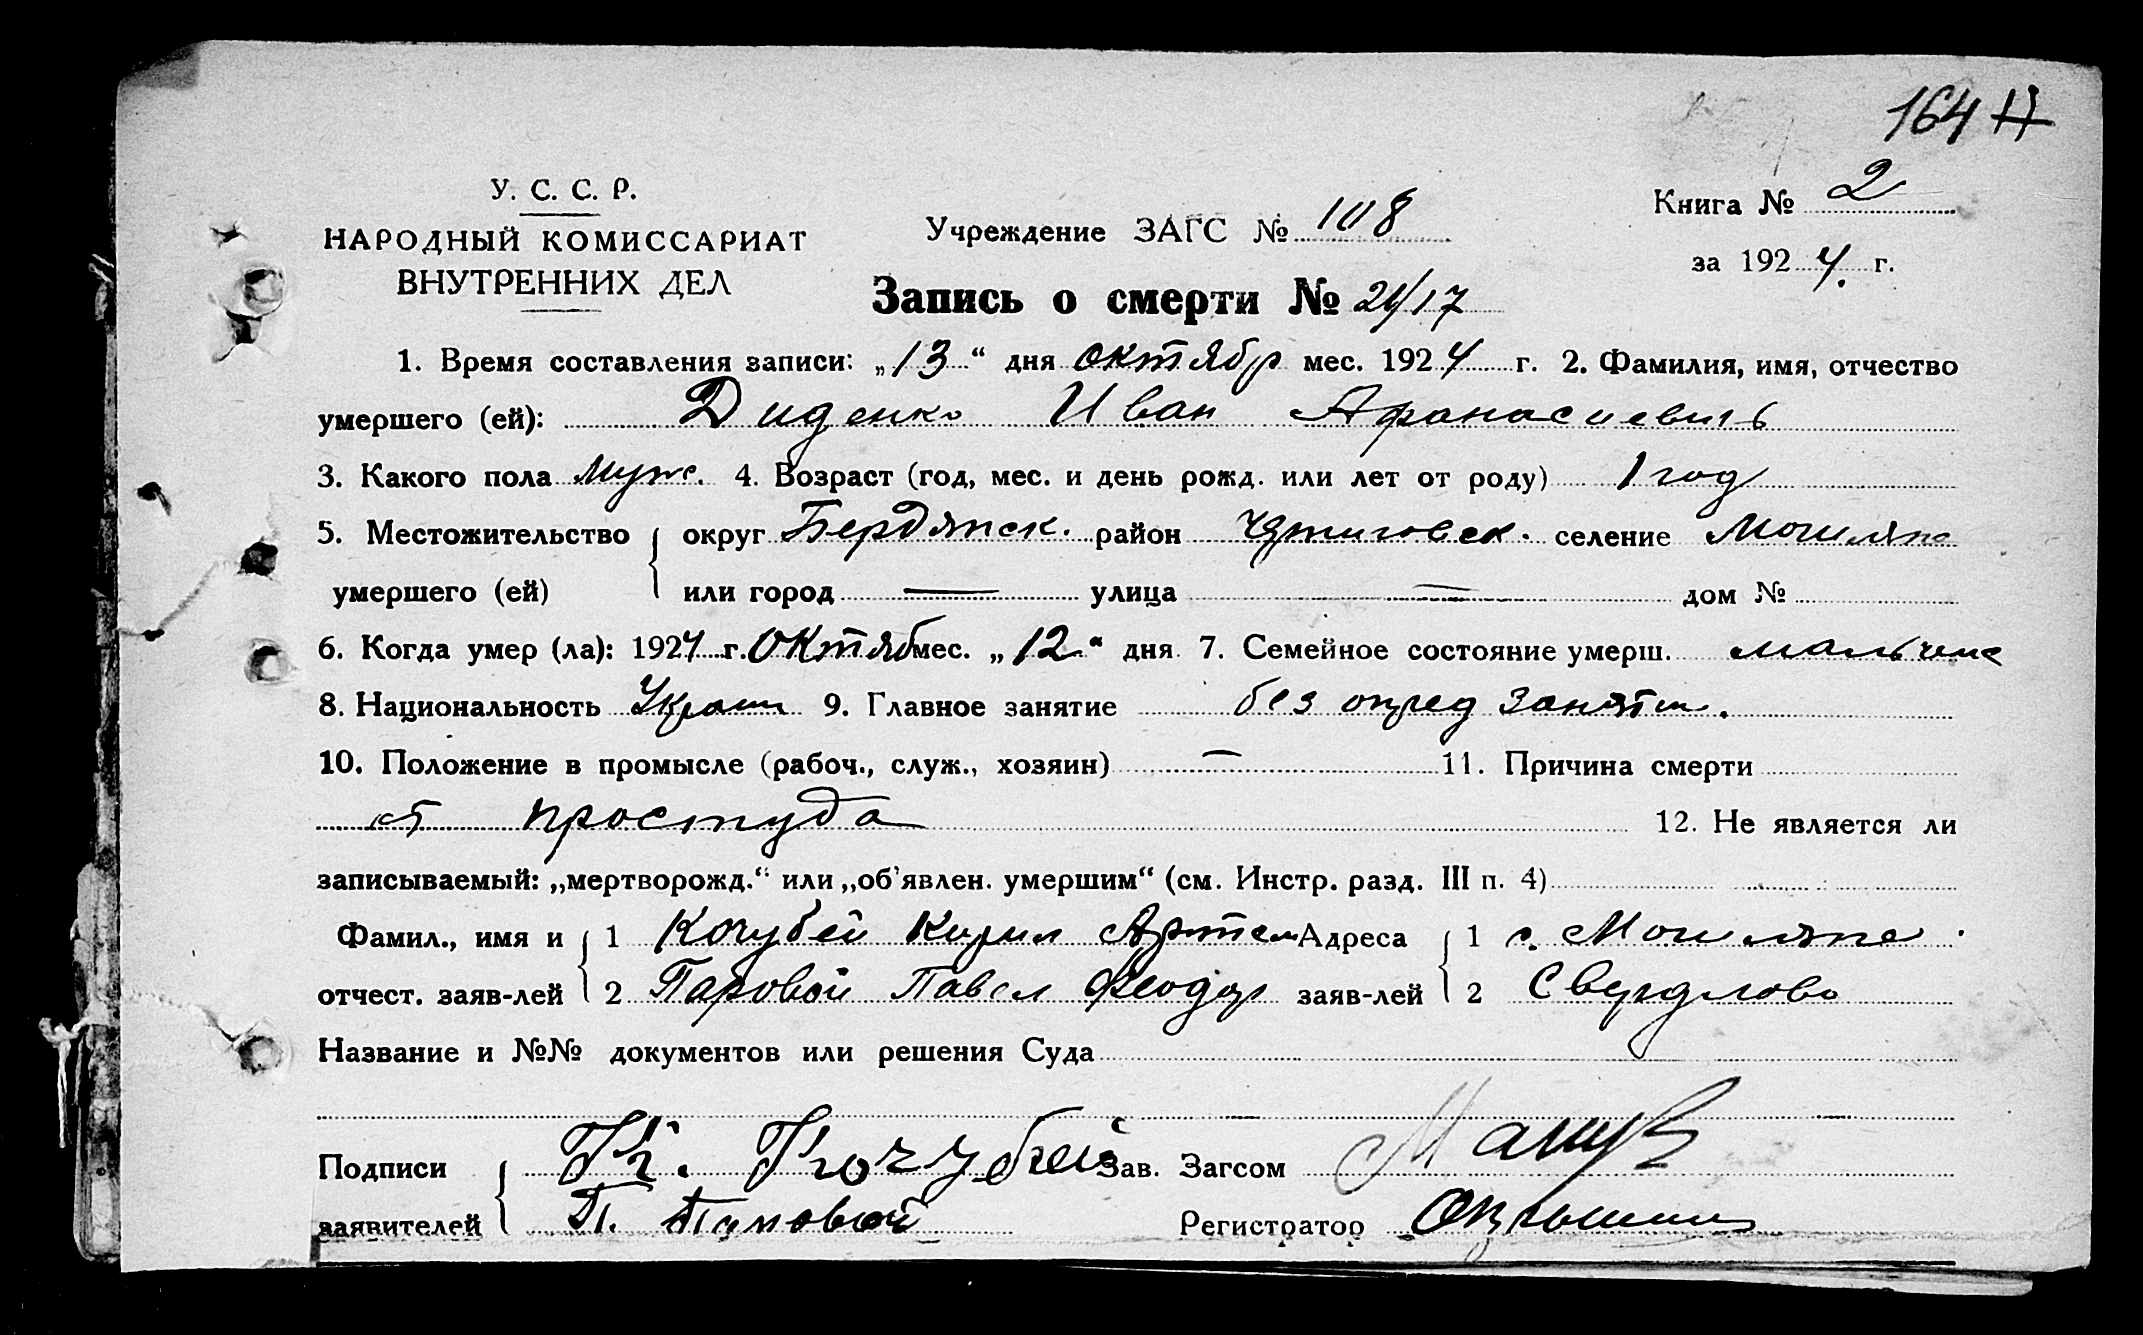 164
У. С. С. Р.
НАРОДНЫЙ КОМИССАРИАТ
ВНУТРЕННИХ ДЕЛ
Учреждение ЗАГС № 108
Книга № 2
за 1924 г.
Запись о смерти № 21/17
1. Время составления записи: „13“ дня октябр мес. 1924 г. 2. Фамилия, имя, отчество
умершего (ей): Диденко Иван Афанасиевич
3. Какого пола муж. 4. Возраст (год, мес. и день рожд. или лет от роду) 1 год
5. Местожительство округ Бердянск. район селение
умершего (ей) или город — улица — дом №
6. Когда умер (ла): 1924 г. Октяб мес. „12“ дня 7. Семейное состояние умерш.
8. Национальность Украин 9. Главное занятие без опред занятий.
10. Положение в промысле (рабоч., служ., хозяин) — 11. Причина смерти
от простуда 12. Не является ли
записываемый: „мертворожд.“ или „об'явлен. умершим“ (см. Инстр. разд. III п. 4)
Фамил., имя и 1 Кочубей Кирил Артем Адреса 1 с.
отчест. заяв-лей 2 Павел Феодор заяв-лей 2 Свердлово
Название и №№ документов или решения Суда
Подписи К. Кочубей Зав. Загсом
заявителей П. Регистратор